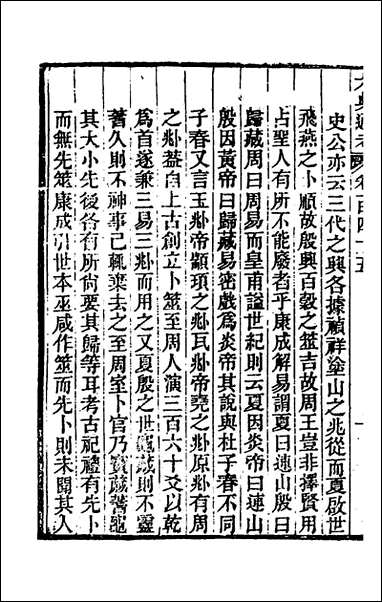 史公亦云三代之興各據禎祥塗山之兆從而夏啟世
飛燕之卜順故殷興百穀之筮吉故周王豈非擇賢用
占聖人有所不能廢者乎康成解易謂夏曰連山殷曰
歸藏周曰周易而皇甫謐世紀則云夏因炎帝曰連山
殷因黃帝曰歸藏易密戲為炎帝其說與杜子春不同
子春又言玉兆帝顓頊之兆瓦兆帝堯之兆原兆有周
之兆蓋自上古創立卜筮至周人演三百六十爻以乾
為首遂兼三易三兆而用之又夏殷之世龜藏則不靈
蓍久則不神事已輒棄去之至周室卜官乃寶藏蓍龜
其大小先後各有所尚要其歸等耳考古祀禮有先卜
而無先筮康成引世本巫咸作筮而先卜則未聞其人